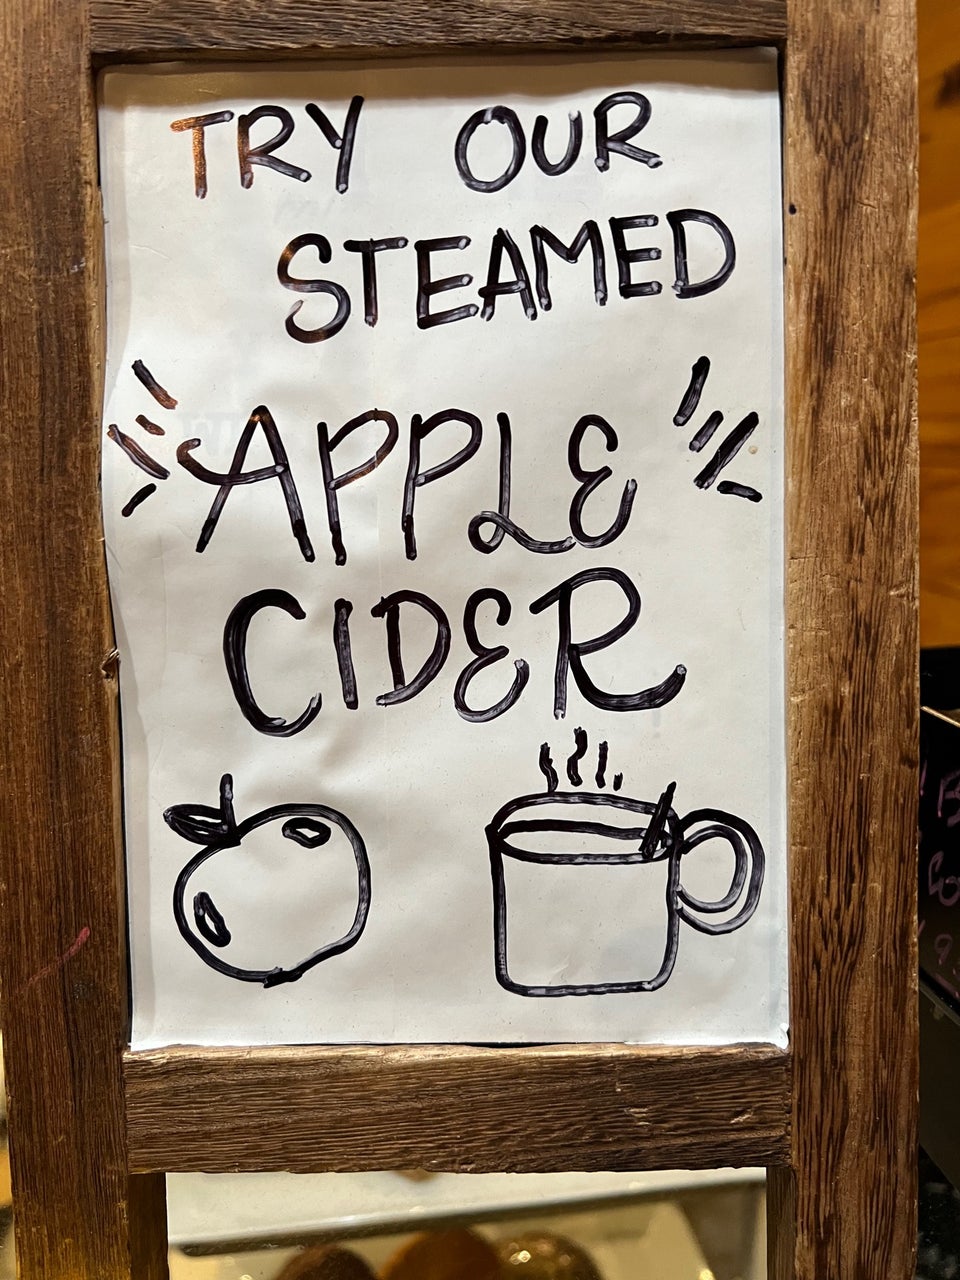 TRY OUR
STEAMED
APPLE
CIDER